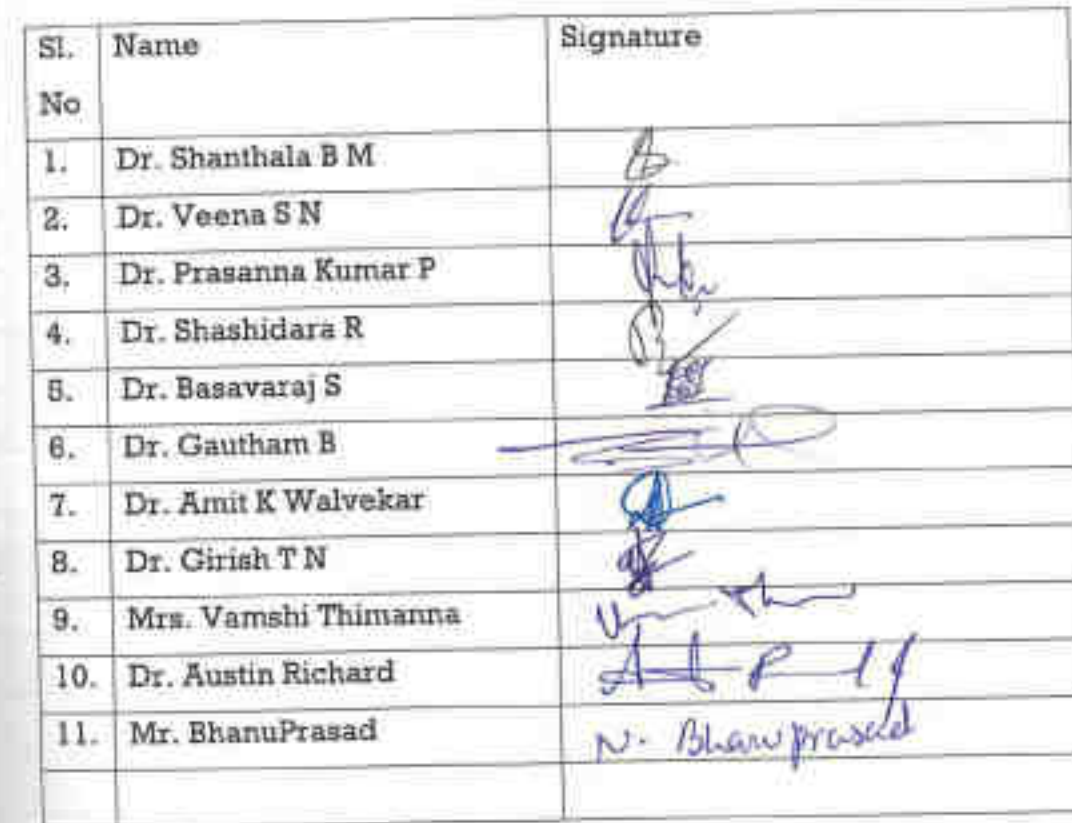 Sl. No Name Signature
1. Dr. Shanthala B M
2. Dr. Veena S N
3. Dr. Prasanna Kumar P
4. Dr. Shashidara R
5. Dr. Basavaraj S
6. Dr. Gautham B
7. Dr. Amit K Walvekar
8. Dr. Girish T N
9. Mrs. Vamshi Thimanna
10. Dr. Austin Richard
11. Mr. BhanuPrasad N. Bhanuprasad